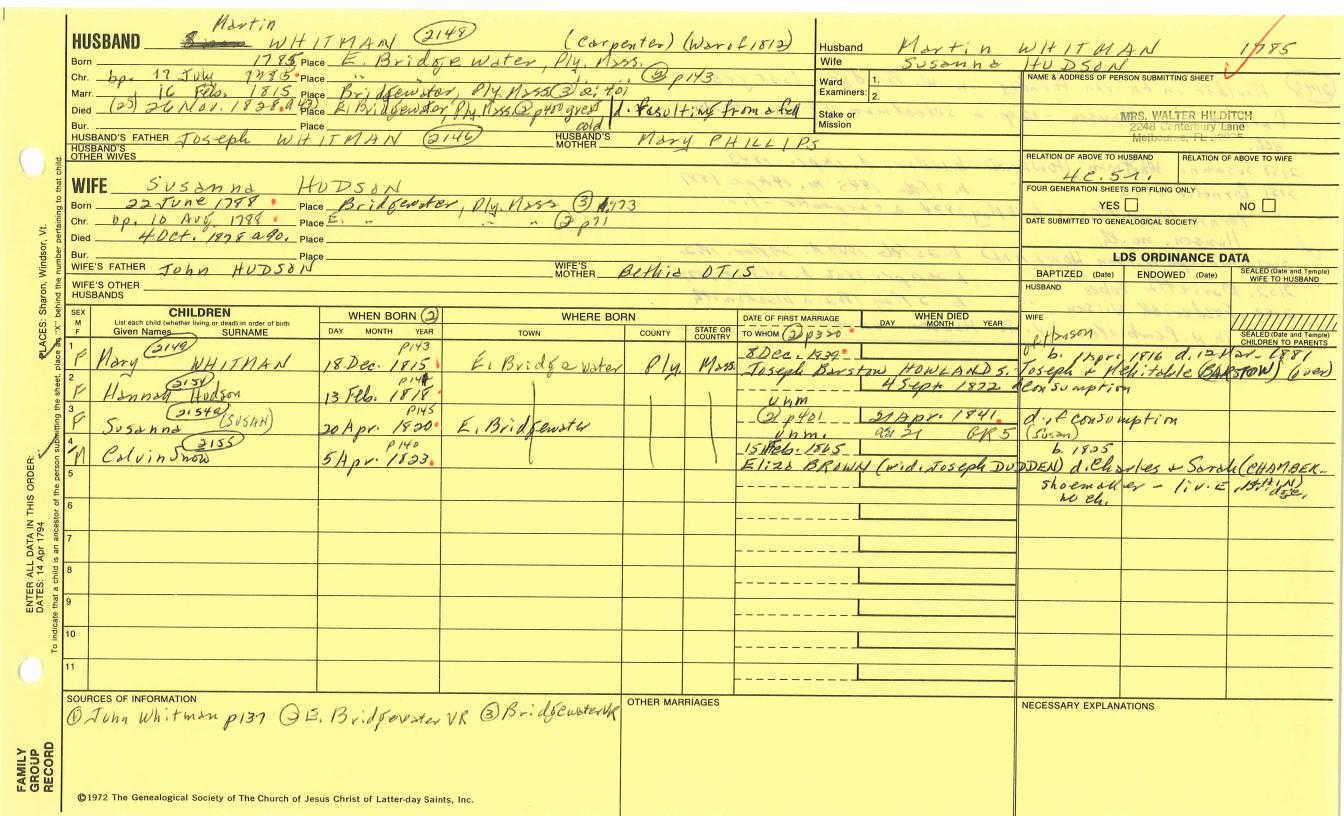 Martin
HUSBAND WHITMAN 2148 (carpenter) (War of 1812)
Born 1785 Place E. Bridgewater, Ply. Mass.
Chr. bp. 17 July 1785 Place " " " ② p143
Marr. 16 Feb. 1815 Place Bridgewater, Ply. Mass ③ 2:401
Died (25) 26 Nov. 1828 Place E. Bridgewater, Ply. Mass ② p400 great cold d. resulting from a fall
Bur. Place
HUSBAND'S FATHER Joseph WHITMAN 2146 HUSBAND'S MOTHER Mary PHILLIPS
HUSBAND'S OTHER WIVES
WIFE Susanna HUDSON
Born 22 June 1788 Place Bridgewater, Ply. Mass ③ 1:173
Chr. bp. 10 Aug. 1788 Place E. " " ② p71
Died 4 Oct. 1878 a 90. Place
Bur. Place
WIFE'S FATHER John HUDSON WIFE'S MOTHER Bethia OTIS
WIFE'S OTHER HUSBANDS
Husband Martin WHITMAN 1785
Wife Susanna HUDSON
Ward Examiners: 1.
2.
Stake or Mission
NAME & ADDRESS OF PERSON SUBMITTING SHEET
MRS. WALTER HILDITCH
2248 Canterbury Lane
Melbourne, FL
RELATION OF ABOVE TO HUSBAND RELATION OF ABOVE TO WIFE
4c.5r.
FOUR GENERATION SHEETS FOR FILING ONLY
YES NO
DATE SUBMITTED TO GENEALOGICAL SOCIETY
LDS ORDINANCE DATA
BAPTIZED (Date) ENDOWED (Date) SEALED (Date and Temple) WIFE TO HUSBAND
HUSBAND
WIFE
SEALED (Date and Temple) CHILDREN TO PARENTS
SEX M F
CHILDREN
List each child (whether living or dead) in order of birth
Given Names SURNAME
WHEN BORN ②
DAY MONTH YEAR
WHERE BORN
TOWN COUNTY STATE OR COUNTRY
DATE OF FIRST MARRIAGE
TO WHOM ② p320
WHEN DIED
DAY MONTH YEAR
1 F Mary 2149 WHITMAN 18 Dec. 1815 p143 E. Bridgewater Ply. Mass. 8 Dec. 1839
Joseph Barstow HOWLAND s. Joseph & Mehitable (BARSTOW) (over)
b. 1 Apr. 1816 d. 12 Mar. 1881
2 F Hannah Hudson 2154 13 Feb. 1818 p141 unm 4 Sept 1822 consumption
3 F Susanna (SUSAN) 2154a 20 Apr. 1820 p145 E. Bridgewater ② p401 unm. 21 Apr. 1841. ae 21 GR5 d. of consumption (Susan)
4 M Calvin Snow 2155 5 Apr. 1823 p140 15 Feb. 1865 b. 1825
Eliza BROWN (wid. Joseph DUDDEN) d. Charles & Sarah (CHAMBERLAIN)
shoemaker - liv. E. Bridge.
no ch.
5
6
7
8
9
10
11
SOURCES OF INFORMATION
① John Whitman p137 ② E. Bridgewater VR ③ Bridgewater VR
OTHER MARRIAGES
NECESSARY EXPLANATIONS
©1972 The Genealogical Society of The Church of Jesus Christ of Latter-day Saints, Inc.
FAMILY GROUP RECORD
ENTER ALL DATA IN THIS ORDER:
DATES: 14 Apr 1794
PLACES: Sharon, Windsor, Vt.
To indicate that a child is an ancestor of the person submitting the sheet, place an "X" behind the number pertaining to that child.